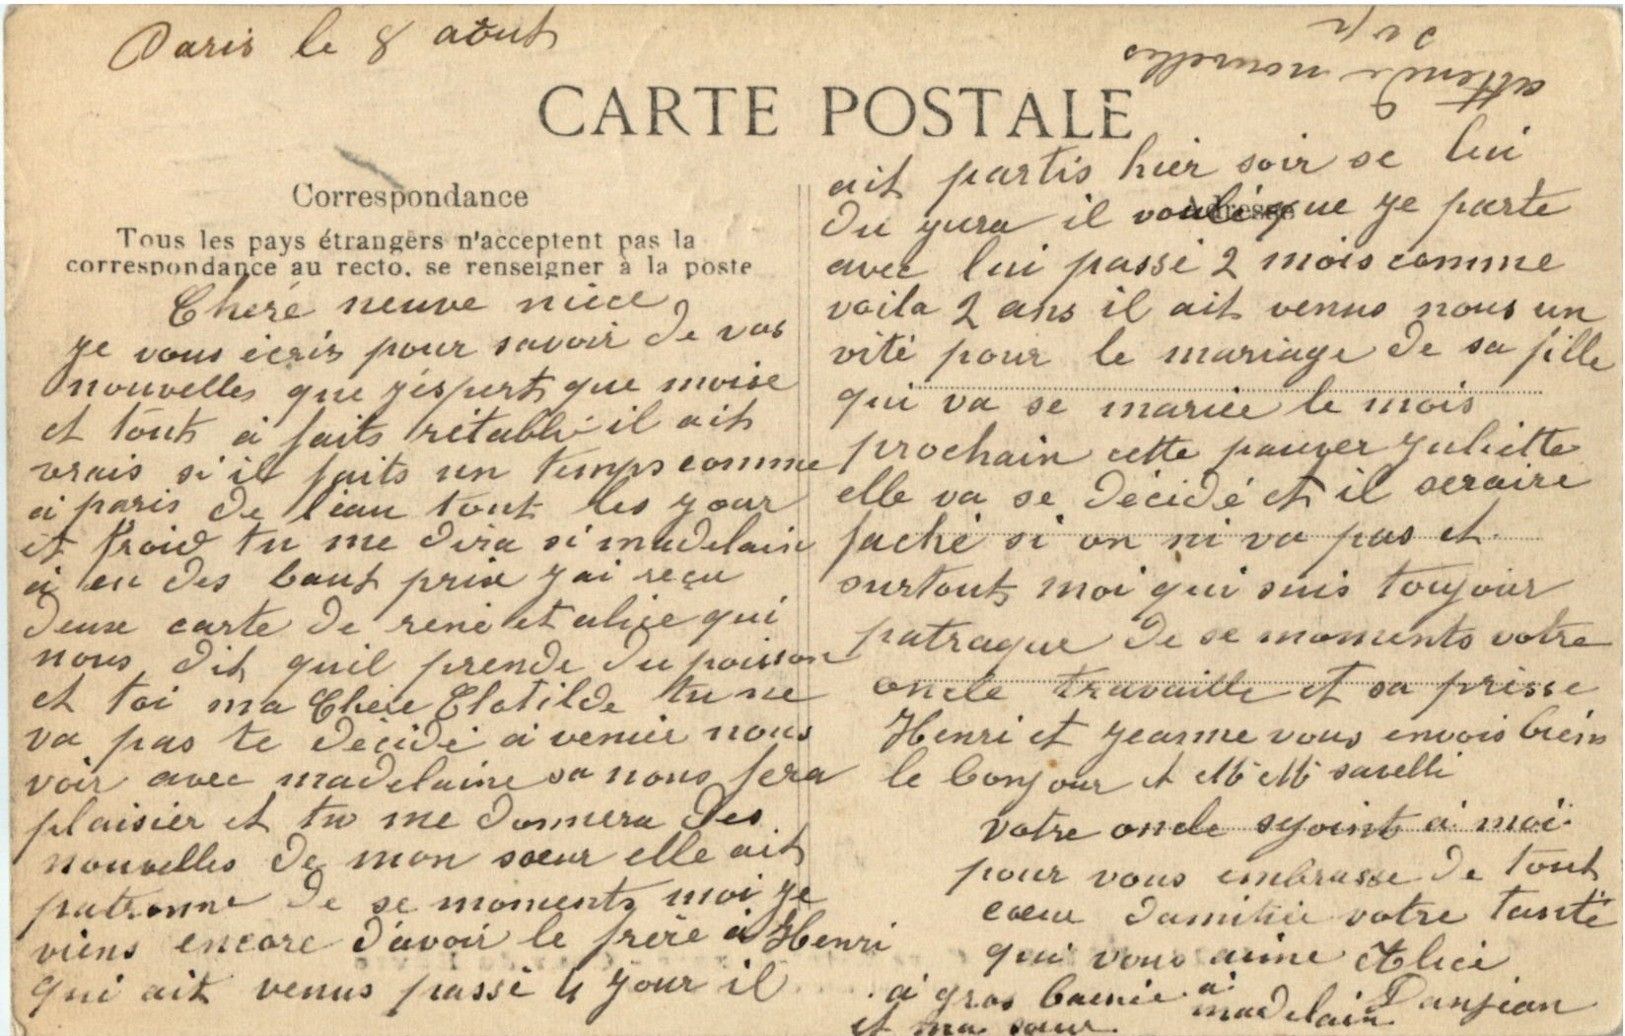 Paris le 8 aout
attends nouvelles
CARTE POSTALE
Correspondance
Tous les pays étrangers n'acceptent pas la
correspondance au recto. se renseigner à la poste
Cheré neuve niece
ye vous écris pour savoir de vos
nouvelles que j'éspert que moise
et touts à faits rétabli il ait
vrais si il faits un temps comme
a paris de l'eau tout les your
et froid tu me dira si madelain
à eu des baut prix j ai reçu
deux carte de rené et alice qui
nous dit quil prende du poisson
et toi ma Chère Clotilde tu ne
va pas te décidé a venir nous
voir avec madelaine sa nous fera
plaisier et tu me donnera des
nouvelles de mon sœur elle ait
patronne de se moments moi ye
viens encore d'avoir le frère à Henri
qui ait venus passé 4 your il
Adresse
ait partis hier soir se lui
du yura il voulé que ye parte
avec lui passé 2 mois comme
voila 2 ans il ait venus nous un
vité pour le mariage de sa fille
qui va se mariée le mois
prochain cette pauver yuliette
elle va se décidé et il seraire
faché si on ni va pas et
surtouts moi qui suis toujoir
patraque de se moments votre
oncle travaille et sa prisse
Henri et yeanne vous envois bien
le bonjour et M M savelli
votre oncle sjoint à moi
pour vous embrasse de tout
cœur damitiée votre tante
qui vous aime Alice
Danjean
à gros baenié à madelain
et ma sœur